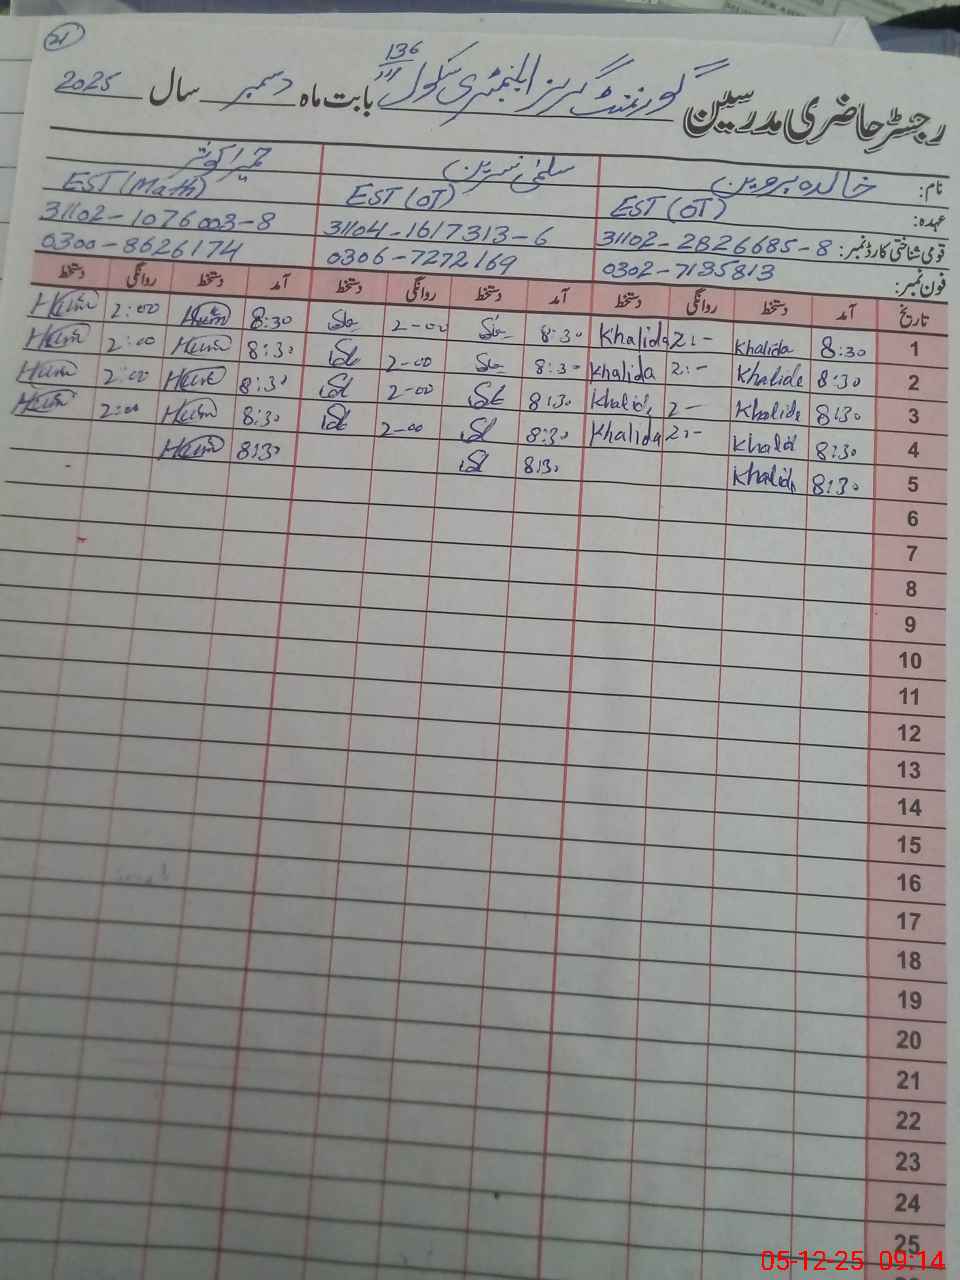 21
رجسٹر حاضری مدرسین گورنمنٹ گرلز ایلیمنٹری سکول 136 بابت ماہ دسمبر سال 2025
نام: خالدہ پروین سلمیٰ نسرین حمیرا کوثر
عہدہ: EST (OT) EST (OT) EST (Math)
قومی شناختی کارڈ نمبر: 31102-2826685-8 31104-1617313-6 31102-1076003-8
فون نمبر: 0302-7135813 0306-7272169 0300-8626174
تاریخ آمد دستخط روانگی دستخط آمد دستخط روانگی دستخط آمد دستخط روانگی دستخط
1 8:30 Khalida 2:- Khalida 8:30 2-00 8:30 2:00
2 8:30 Khalida 2:- Khalida 8:30 2-00 8:30 2:00
3 8:30 Khalida 2- Khalida 8:30 2-00 8:30 2:00
4 8:30 Khalid 2:- Khalida 8:30 2-00 8:30 2:00
5 8:30 Khalida 8:30 8:30
6
7
8
9
10
11
12
13
14
15
16
17
18
19
20
21
22
23
24
25
05-12-25 09:14